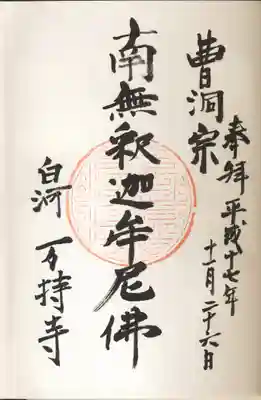 奉拜 平成十七年
十一月二十六日
曹洞宗
南無釈迦牟尼佛
白河 万持寺